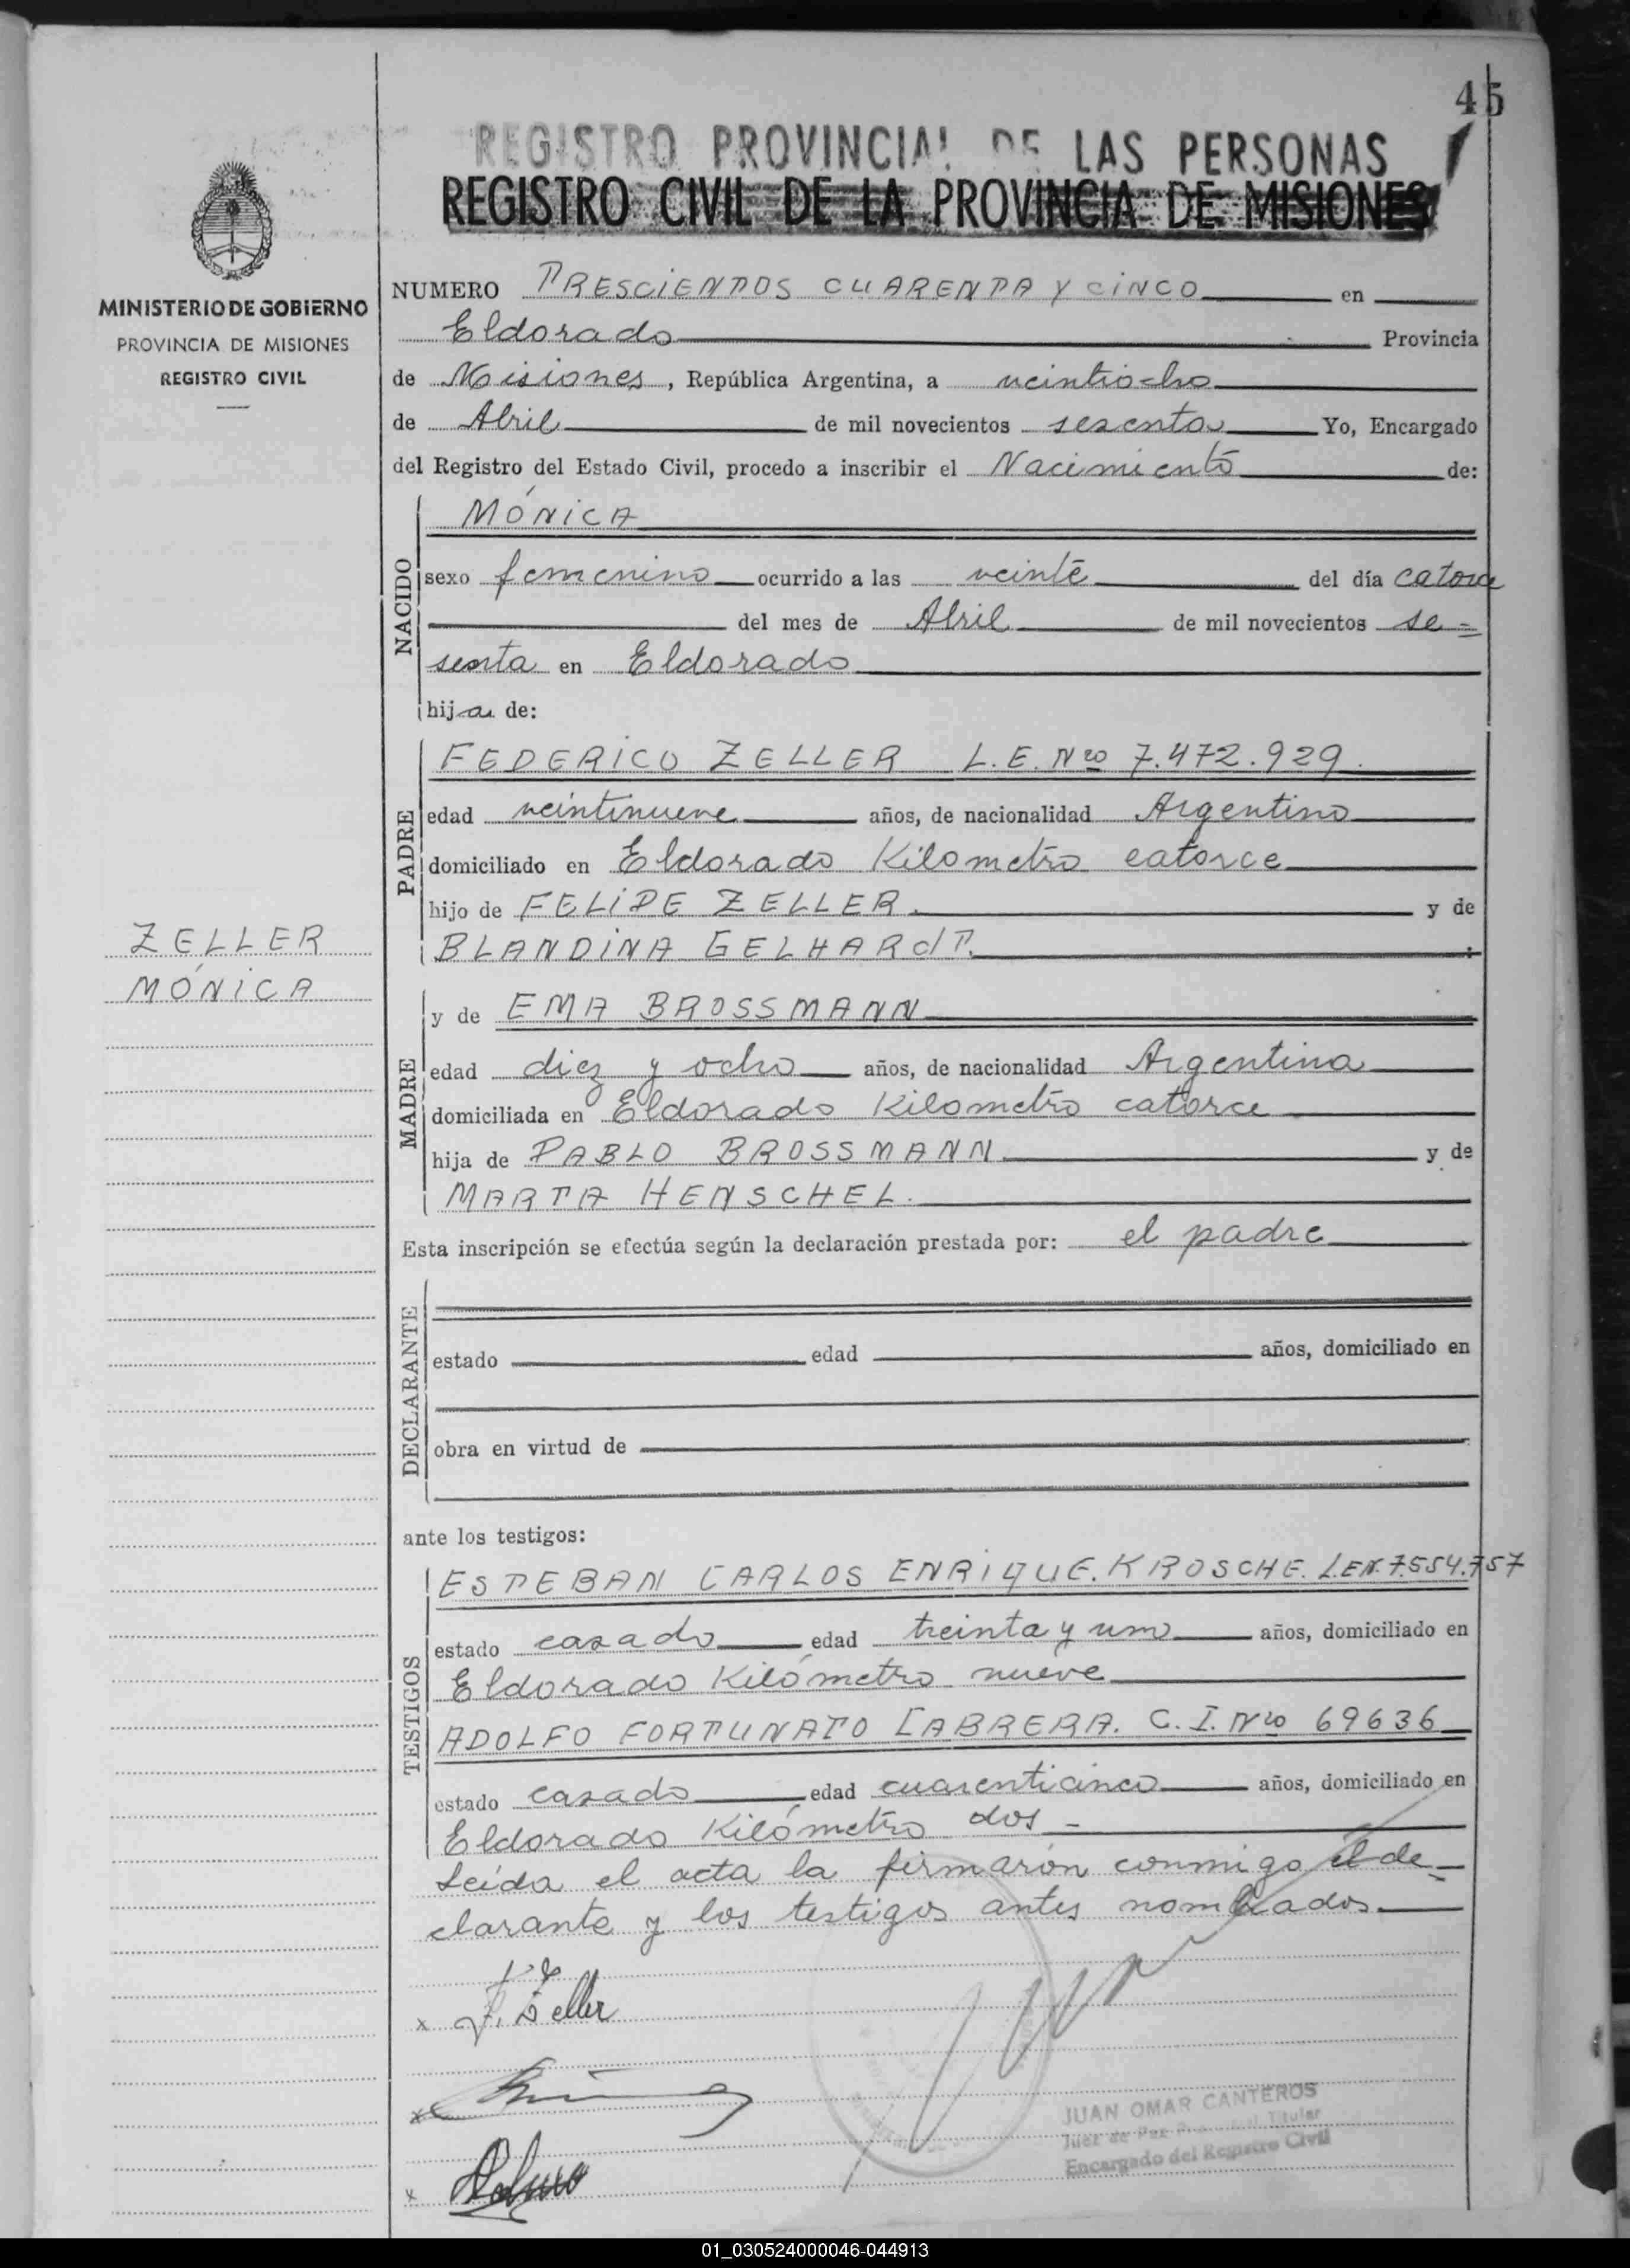 45
REGISTRO PROVINCIAL DE LAS PERSONAS
REGISTRO CIVIL DE LA PROVINCIA DE MISIONES
MINISTERIO DE GOBIERNO
PROVINCIA DE MISIONES
REGISTRO CIVIL
NUMERO TRESCIENTOS CUARENTA Y CINCO en
Eldorado Provincia
de Misiones, República Argentina, a veintiocho
de Abril de mil novecientos sesenta Yo, Encargado
del Registro del Estado Civil, procedo a inscribir el Nacimiento de:
NACIDO
MÓNICA
sexo femenino ocurrido a las veinte del día catorce
del mes de Abril de mil novecientos se=
senta en Eldorado
hija de:
PADRE
FEDERICO ZELLER L.E. Nro 7.472.929.
edad veintinueve años, de nacionalidad Argentino
domiciliado en Eldorado Kilometro catorce
hijo de FELIPE ZELLER. y de
BLANDINA GELHARdT.
ZELLER
MÓNICA
MADRE
y de EMA BROSSMANN
edad diez y ocho años, de nacionalidad Argentina
domiciliada en Eldorado Kilometro catorce
hija de PABLO BROSSMANN y de
MARTA HENSCHEL.
Esta inscripción se efectúa según la declaración prestada por: el padre
DECLARANTE
estado edad años, domiciliado en
obra en virtud de
ante los testigos:
TESTIGOS
ESTEBAN CARLOS ENRIQUE. KROSCHE. L.E.N. 7.554.757
estado casado edad treinta y uno años, domiciliado en
Eldorado Kilómetro nueve
ADOLFO FORTUNATO CABRERA. C.I. Nro 69636
estado casado edad cuarenticinco años, domiciliado en
Eldorado Kilómetro dos -
Leida el acta la firmarón conmigo el de=
clarante y los testigos antes nombrados.
x F. Zeller
x
x
JUAN OMAR CANTEROS
Juez de Paz Titular
Encargado del Registro Civil
01_030524000046-044913